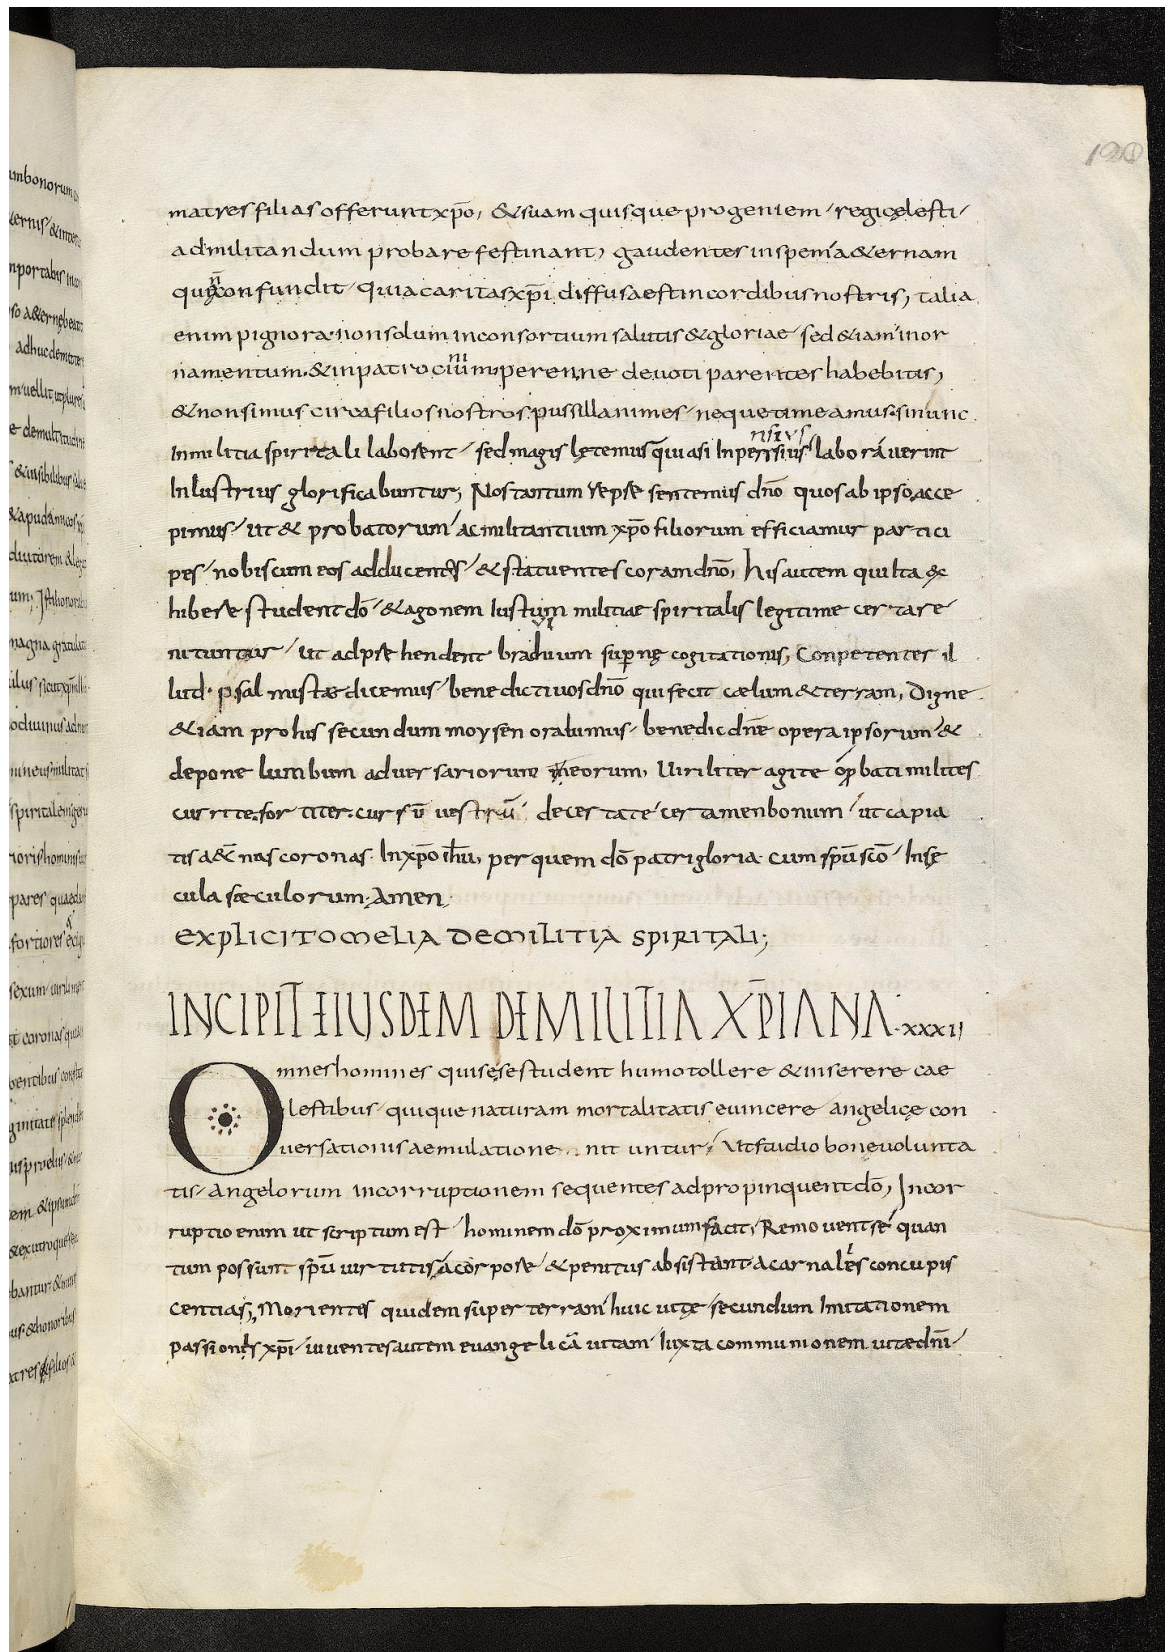 120
matres filias offerunt xp̄o, & suam quisque progeniem regi cęlesti
ad militandum probare festinant, gaudentes in spem &ernam
qu confundit quia caritas xp̄i diffusa est in cordibus nostris, talia
enim pignora non solum in consortium salutis & gloriae sed &iam in or
namentum & in patrocinium perenne devoti parentes habebitis,
& non simus circa filios nostros pussillanimes neque timeamus si nunc
In militia spiritali laborent sed magis lętemus quasi laboraverint
Inlustrius glorificabuntur, Nos tantum sentemus dn̄o quos ab ipso acce
pimus ut & probatorum ac militantium xp̄o filiorum efficiamur partici
pes nobiscum eos adducentes & statuentes coram dn̄o, his autem qui Ita ex
hibere student dō & agonem Iustum militiae spiritalis legitime certare
nituntur ut adprehendent bravium supernę cogitationis, Conpetenter il
lud psalmistae dicemus benedicti vos dn̄o qui fecit cælum & terram, Digne
&iam pro his secundum moysen orabimus benedic dn̄e opera ipsorum &
depone lumbum adversariorum eorum, Uiriliter agite o probati milites
currite fortiter cursū vestrū decertate certamen bonum ut capia
tis a&nas coronas In xp̄o ih̄u, per quem dō patri gloria cum sp̄u sc̄o In sę
cula sæculorum Amen
EXPLICIT OMELIA DE MILITIA SPIRITALI;
INCIPIT EIUSDEM DE MILITIA XP̄IANA XXXII
Omnes homines qui se se student humo tollere & inserere cae
lestibus quique naturam mortalitatis evincere angelicę con
versationis aemulatione nituntur, Ut studio bone volunta
tis angelorum incorruptionem sequentes adpropinquent dō, Incor
ruptio enim ut scriptum est hominem dō proximum facit, Removent se quan
tum possunt sp̄u virtutis a corpore & penitus absistant a carnales concupis
centias, Morientes quidem super terram huic vitę secundum Imitationem
passionis xp̄i viventes autem evangelicā vitam Iuxta communionem vitae dn̄i